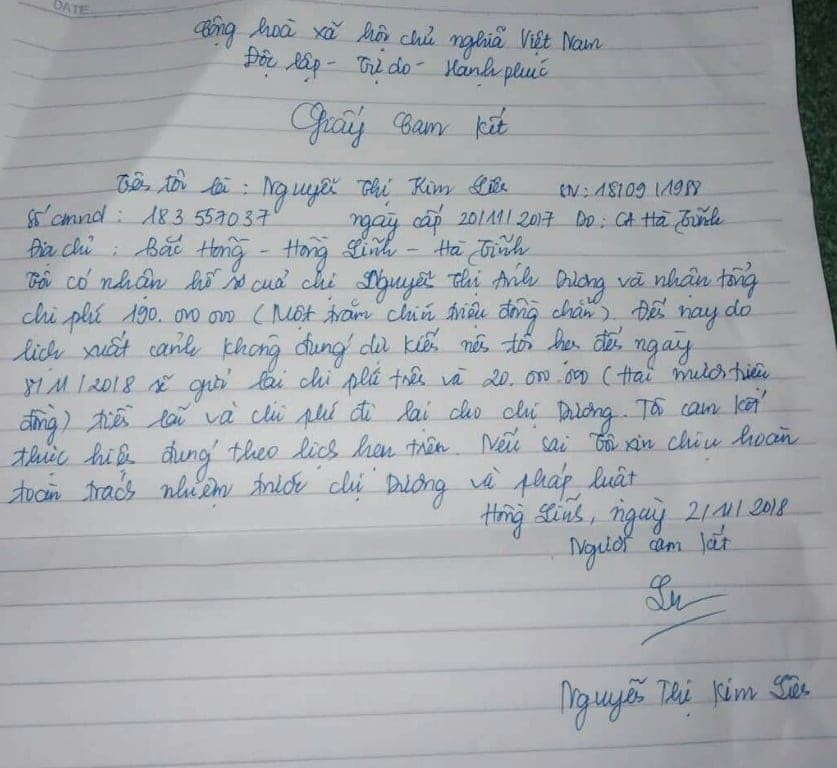 DATE
Cộng hoà xã hội chủ nghĩa Việt Nam
Độc lập - Tự do - Hạnh phúc
Giấy Cam kết
Tên tôi là : Nguyễn Thị Kim Liên SN: 18/09/1988
Số cmnd : 183 557037 ngày cấp 20/11/2017 Do: CA Hà Tĩnh
Địa chỉ : Bắc Hồng - Hồng Lĩnh - Hà Tĩnh
Tôi có nhận hồ sơ của chị Nguyễn Thị Ánh Dương và nhận tổng
chi phí 190.000.000 (Một trăm chín triệu đồng chẵn). Đến nay do
lịch xuất cảnh không đúng dự kiến nên tôi hẹn đến ngày
8/11/2018 sẽ gửi lại chi phí trên và 20.000.000 (Hai mươi triệu
đồng) tiền lãi và chi phí đi lại cho chị Dương. Tôi cam kết
thực hiện đúng theo lịch hẹn trên. Nếu sai tôi xin chịu hoàn
toàn trách nhiệm trước chị Dương và pháp luật
Hồng Lĩnh, ngày 2/11/2018
Người cam kết
Nguyễn Thị Kim Liên